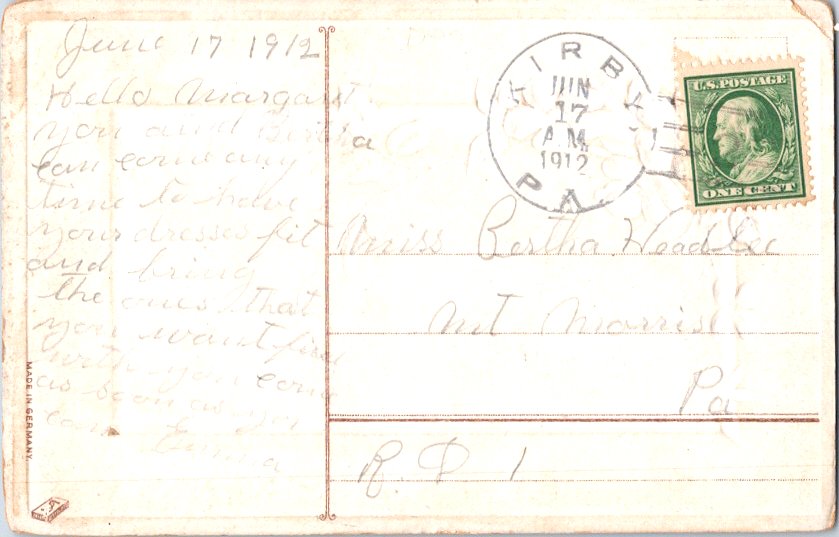 June 17 1912
Hello Margaret
you and Bertha
can come any
time to have
your dresses fit
and bring
the ones that
you want fixed
with you come
as soon as you
can. Emma
MADE IN GERMANY.
KIRBY
JUN
17
A.M.
1912
PA
U.S. POSTAGE
ONE CENT
Miss Bertha Headlee
Mt Morris
Pa
R. D 1